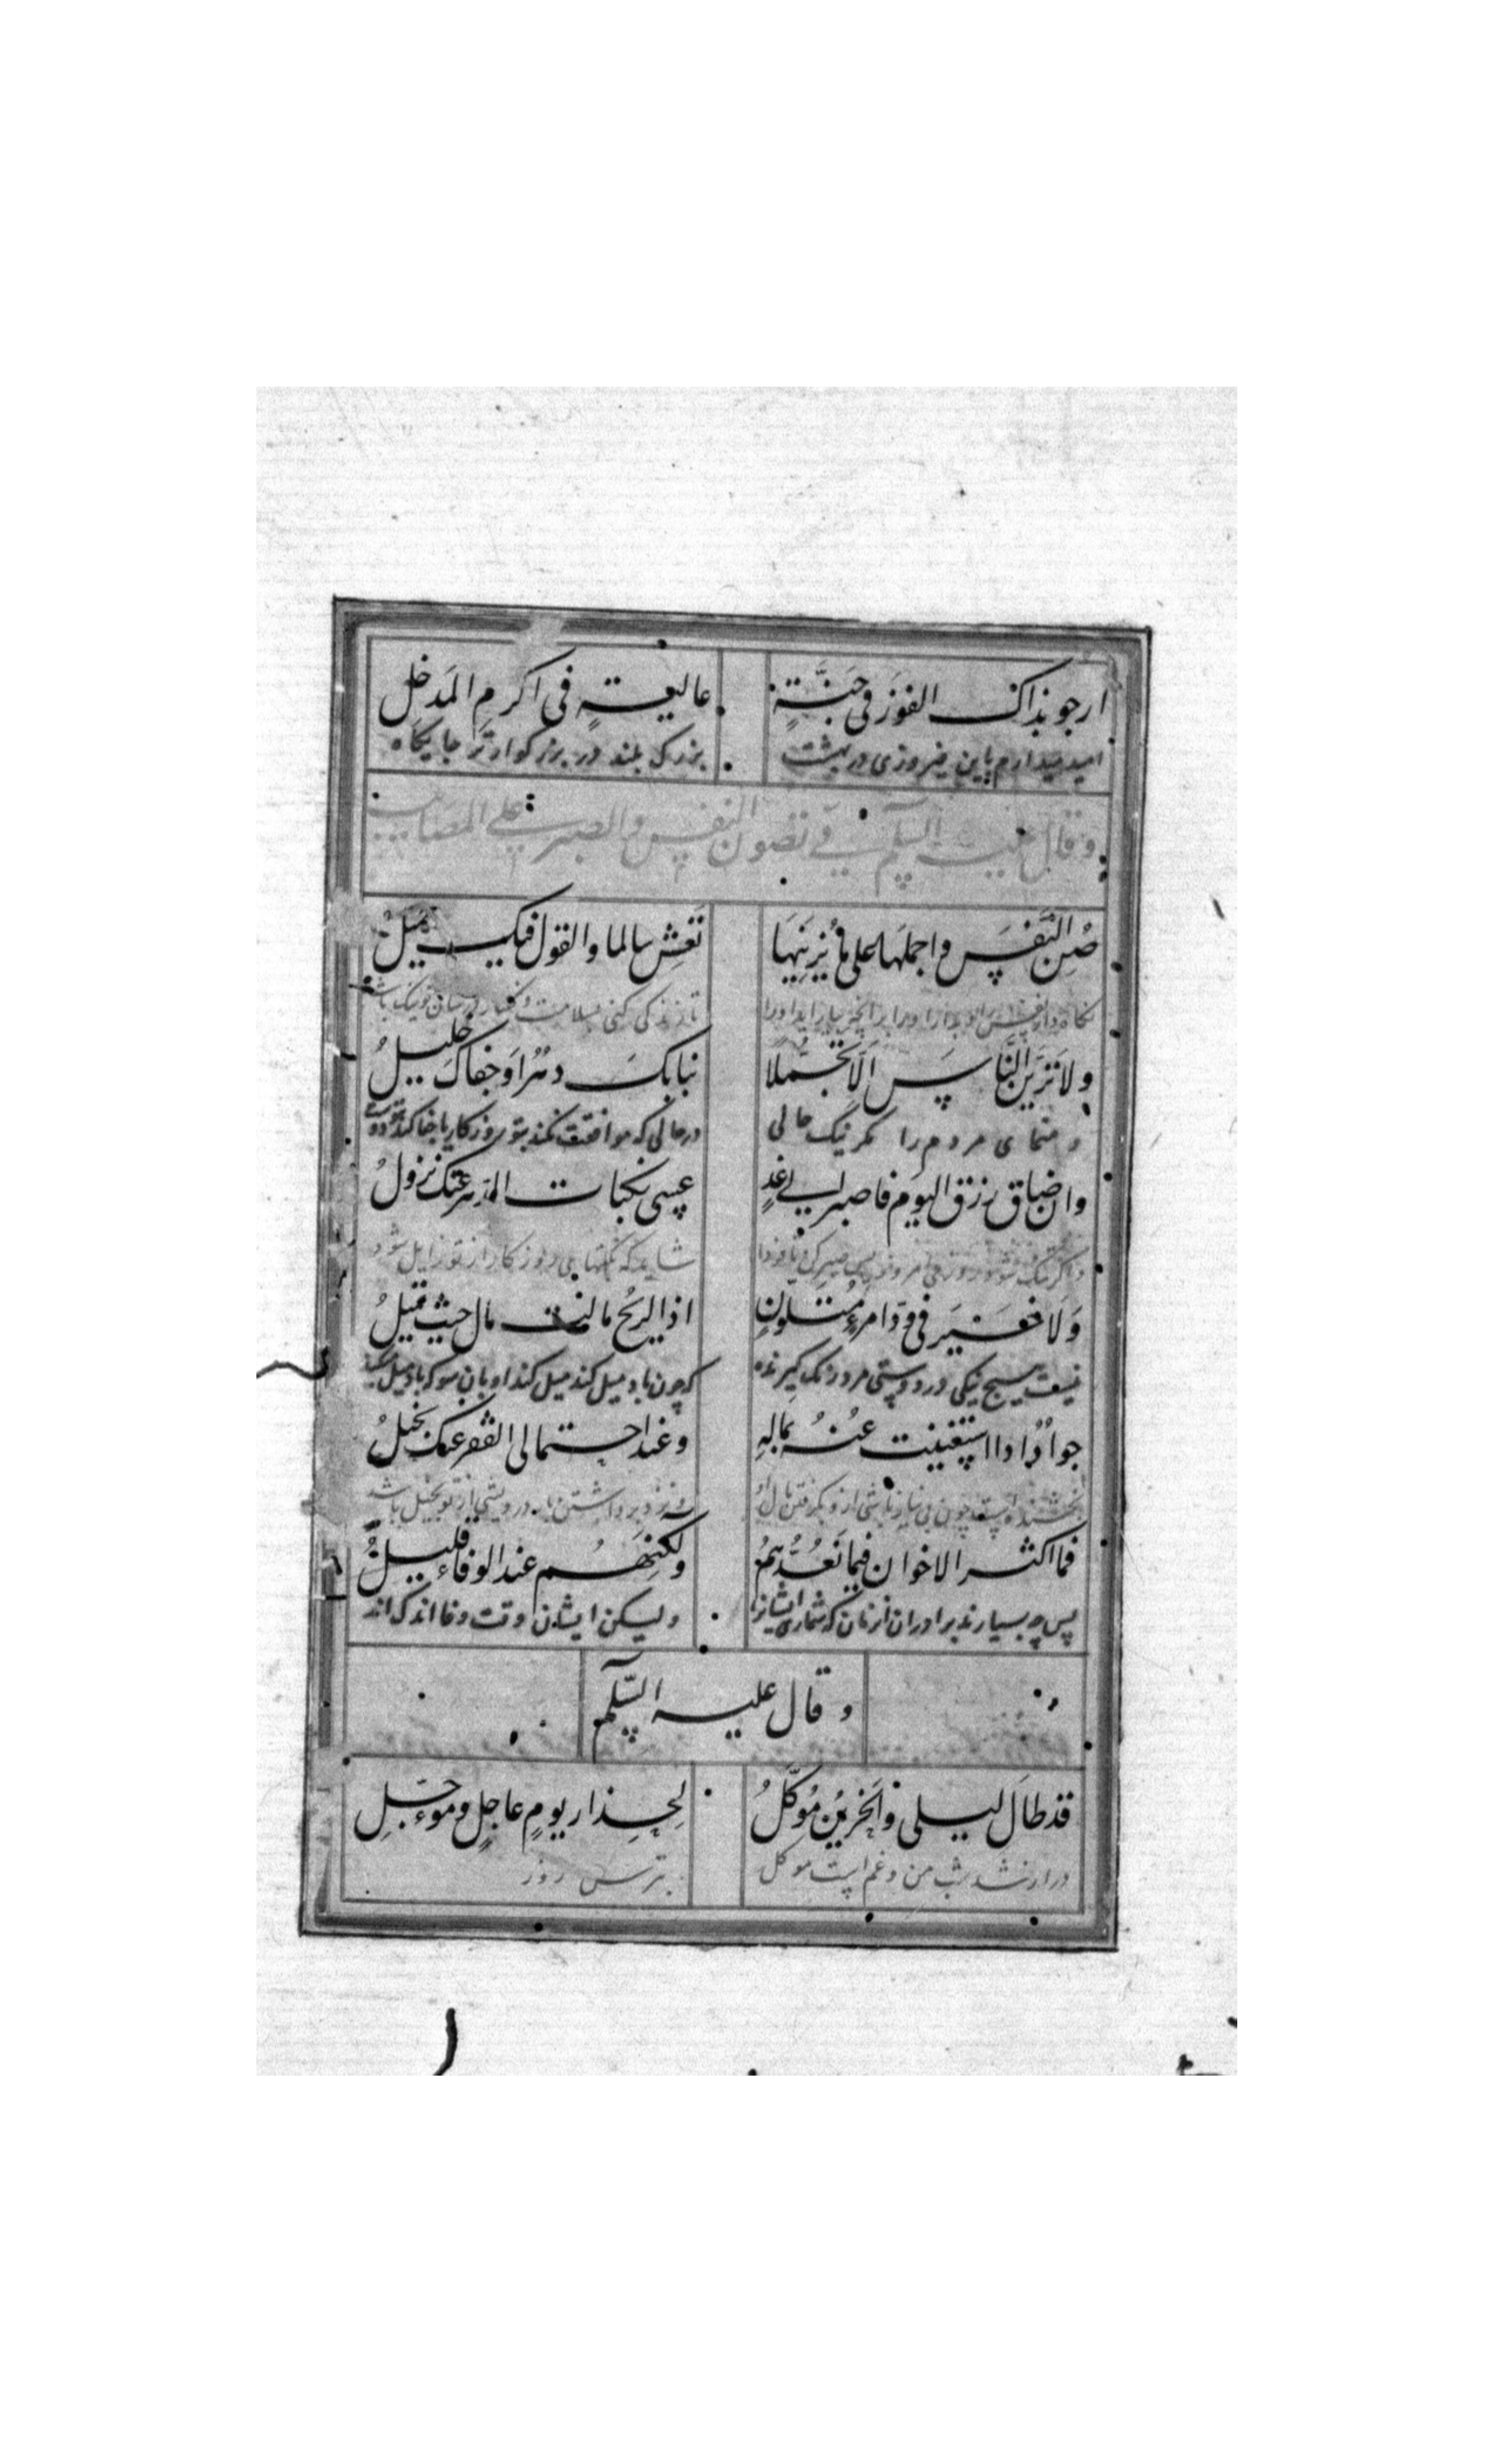 ارجو بذاك الفوز فی جَنَّةٍ عالیةٍ فی اکرمِ المَدخلِ
امید میدارم باین فیروزی در بهشت بزرک بلند در بزرکوارتر جایکاه
وقال علیه السلم فی تصون النفس والصبر علی المصایب
صُنِ النَّفسَ واحملها علی ما یُزیِنُها تَعِش سالما والقول فیک جمیلُ
نکاه دار نفس را و بدار او را بر آنچه بیاراید او را تا زندکی کنی بسلامت و کفتار در شان تو نیک باشد
ولا تُرِیَنَّ النَّاسَ اَلّا تجمُّلا نبا بکَ دهرٌ او جفاکَ خلیلُ
و منمای مردم را مکر نیک حالی در حالی که موافقت نکند بتو روزکار یا جفا کند دوست
وان ضاق رزق الیوم فاصبر الی غدٍ عسی نکبات الدهر عنک تزولُ
واکر تنک شود روزی امروز پس صبر کن تا فردا شاید که نکبتهای روزکار از تو زایل شود
وَلَا خَیرَ فی وُدِّ امرءٍ مُتلونٍ اذا الریحُ مالت مال حیث تمیلُ
نیست هیچ نیکی در دوستی مرد رنک کیرنده که چون باد میل کند میل کند او بان سو که باد میل کند
جوادٌ اذا استغنیت عنهُ بمالِهِ وعند احتمال الفقر عنک بخیلُ
بخشنده است چون بی نیاز باشی از و بکرفتن مال او و نزد برداشتن بار درویشی از تو بخیل باشد
فما اکثر الاخوان فیما تَعُدُّهمُ ولکنهم عند الوفاء قلیلُ
پس چه بسیارند برادران انزمان که شماری ایشانرا ولیکن ایشان وقت وفا اندک اند
وقال علیه السّلم
قد طالَ لیلی والحَزینُ مُوکَّلُ لِحِذار یومٍ عاجلٍ وموءجَّلِ
دراز شد شب من و غم است موکل بترس روز